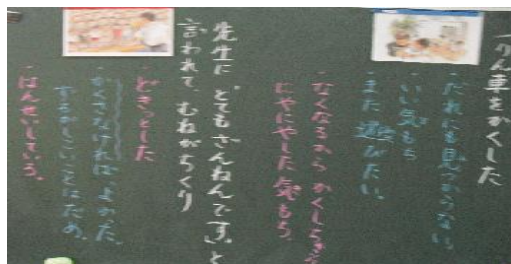 一りん車をかくした
・だれにも見つからない
・いい気もち
・また遊びたい。
・なくなるから かくしちゃう
にやにやした気もち
先生に、とてもざんねんです。と
言われて、むねがちくり
・どきっとした
・かくさなければよかった。
ずるがしこいことはだめ。
・はんせいしている。